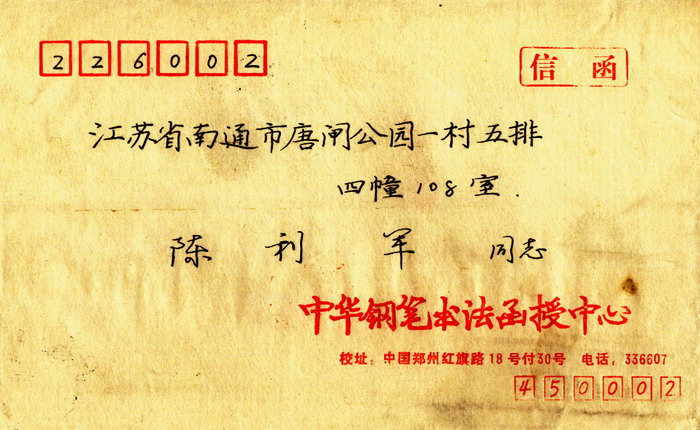 226002
信函
江苏省南通市唐闸公园一村五排
四幢108室.
陈利军 同志
中华钢笔书法函授中心
校址：中国郑州红旗路18号付30号 电话，336607
450002